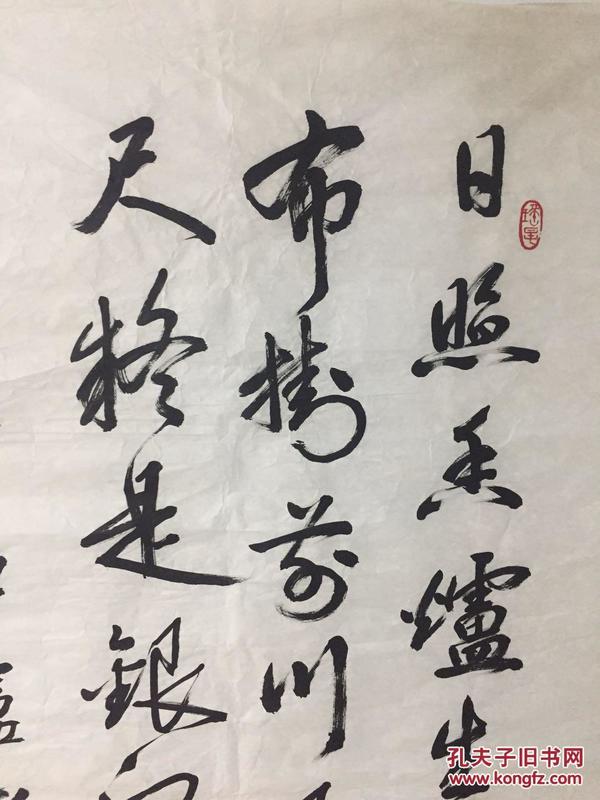 日照香爐生
布掛前川
尺疑是銀
孔夫子旧书网
www.kongfz.com